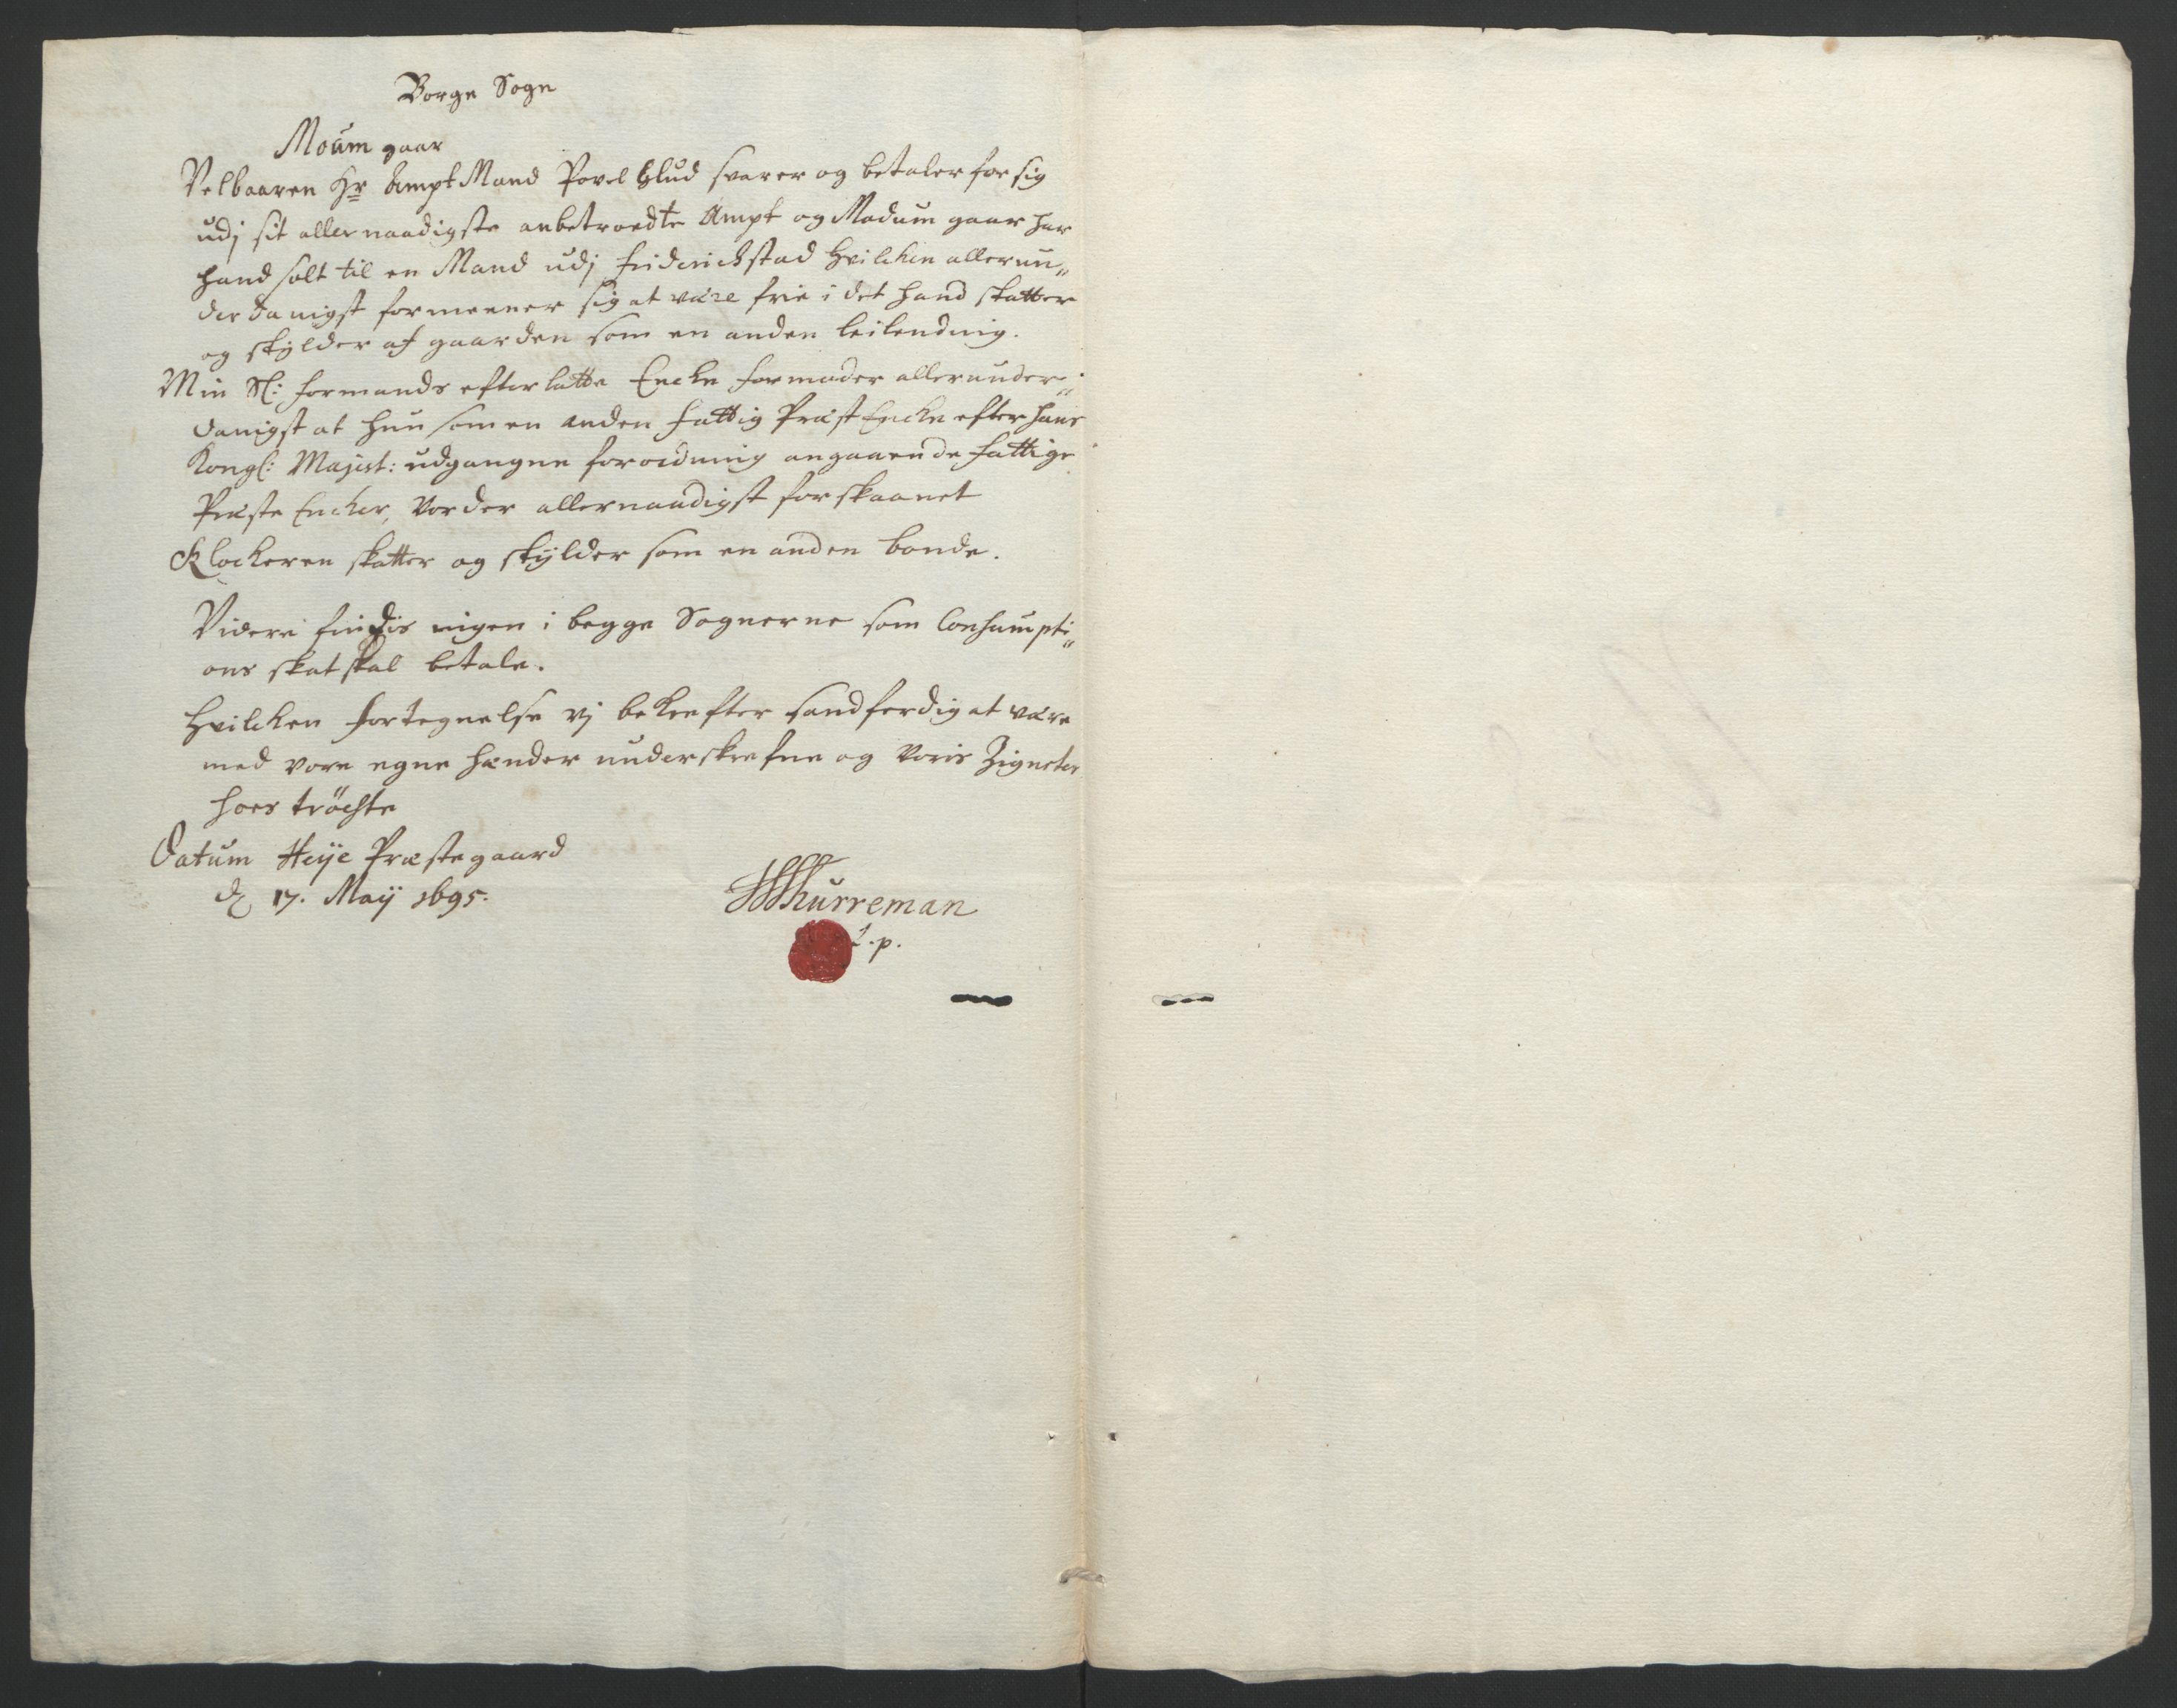 Borge Sogn
Moum gaar
Velbaaren Hr Ampt Mand Povel Glud svarer og betaler for sig
udj sit allernaadigste anbetroedte Ampt og Modum gaar har
hand solt til en Mand udj Friderichstad hvilchen allerun„
derdanigst formeener sig at være frie i det hand skatter
og skylder af gaarden som en anden leilending.
Min Sl: formands efterlatte Encke formoder allerunder„
danigst at hun som en anden fattig Præst Encke efter hans
Kongl: Majest: udgangne forordning angaaende fattige
Præste Encker, vorder allernaadigst forskaanet
Klockeren skatter og skylder som en anden bonde.
Videre findis ingen i begge Sognerne som Consumpti„
ons skat skal betale.
Hvilchen fortegnelse vj bekrefter sandferdig at være
med vore egne hænder underskrefne og voris Zigneter
hoes tröchte
Datum Præstegaard
d 17. Maij 1695.
Thurreman